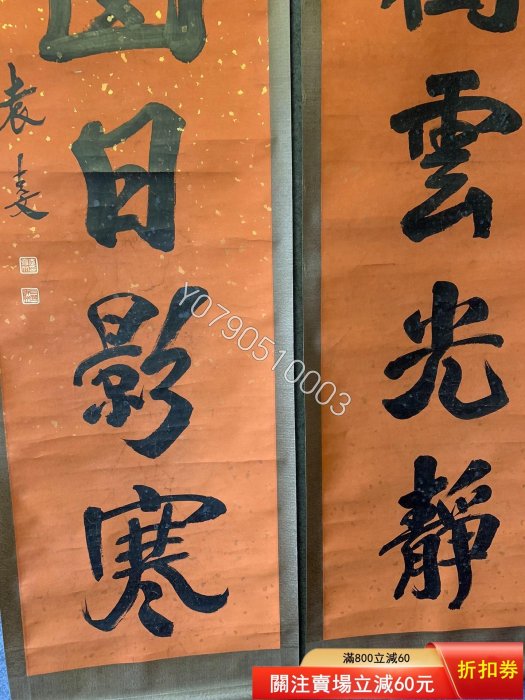 雲光靜
日影寒
袁
Y0790510003
滿800立減60
關注賣場立減60元
折扣券